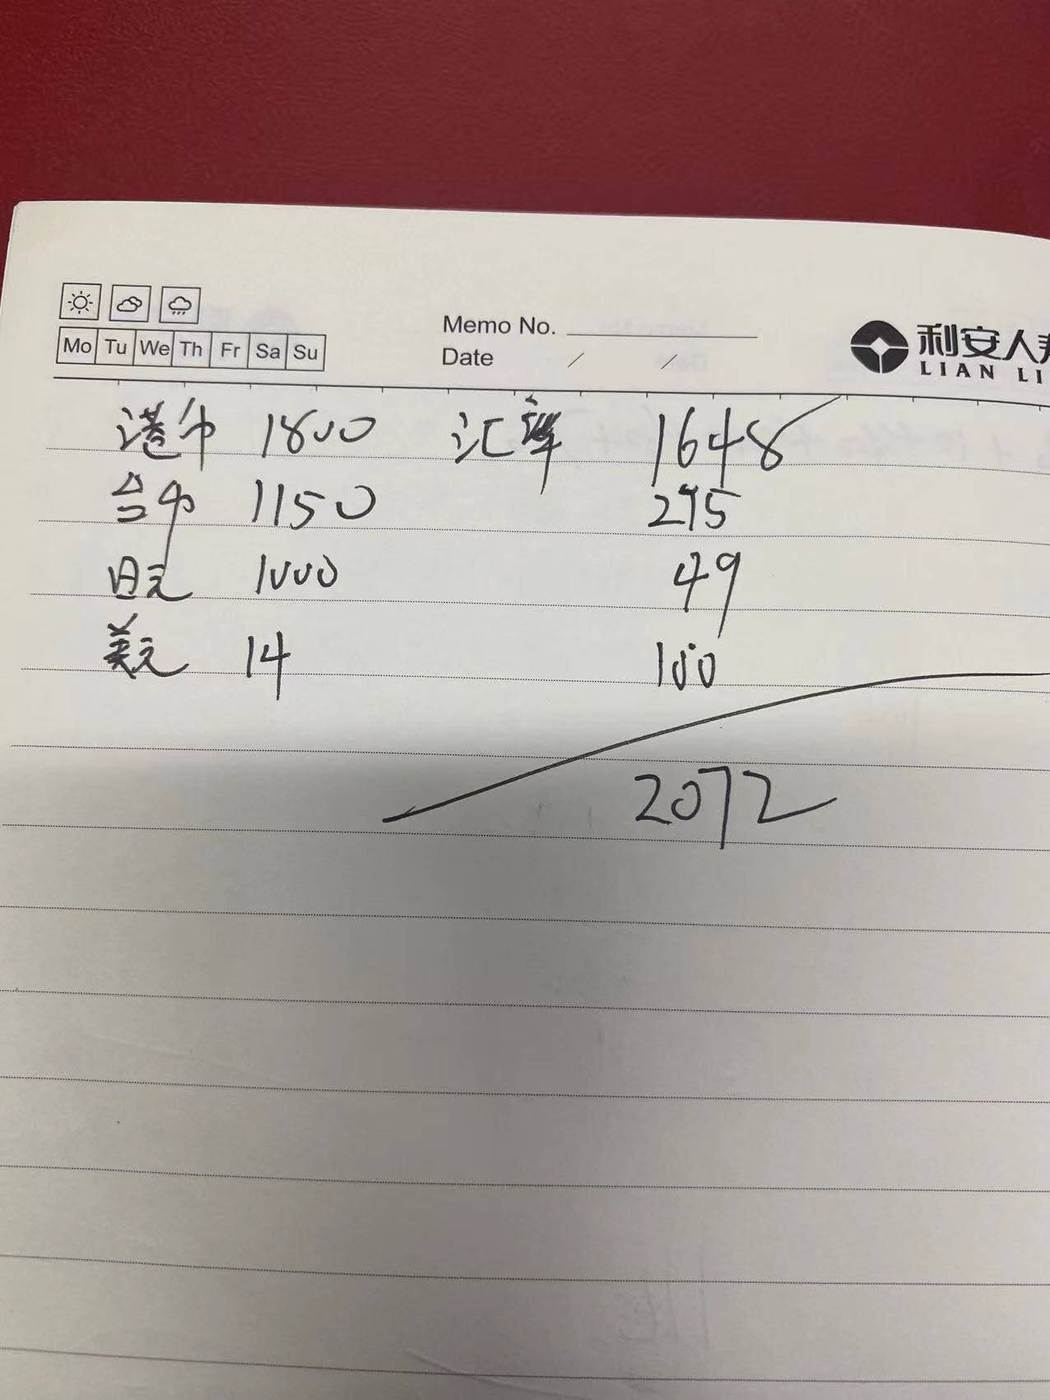 Mo Tu We Th Fr Sa Su
Memo No.
Date / /
利安人
LIAN LI
港币 1800 汇率 1648
台币 1150 275
日元 1000 49
美元 14 100
2072